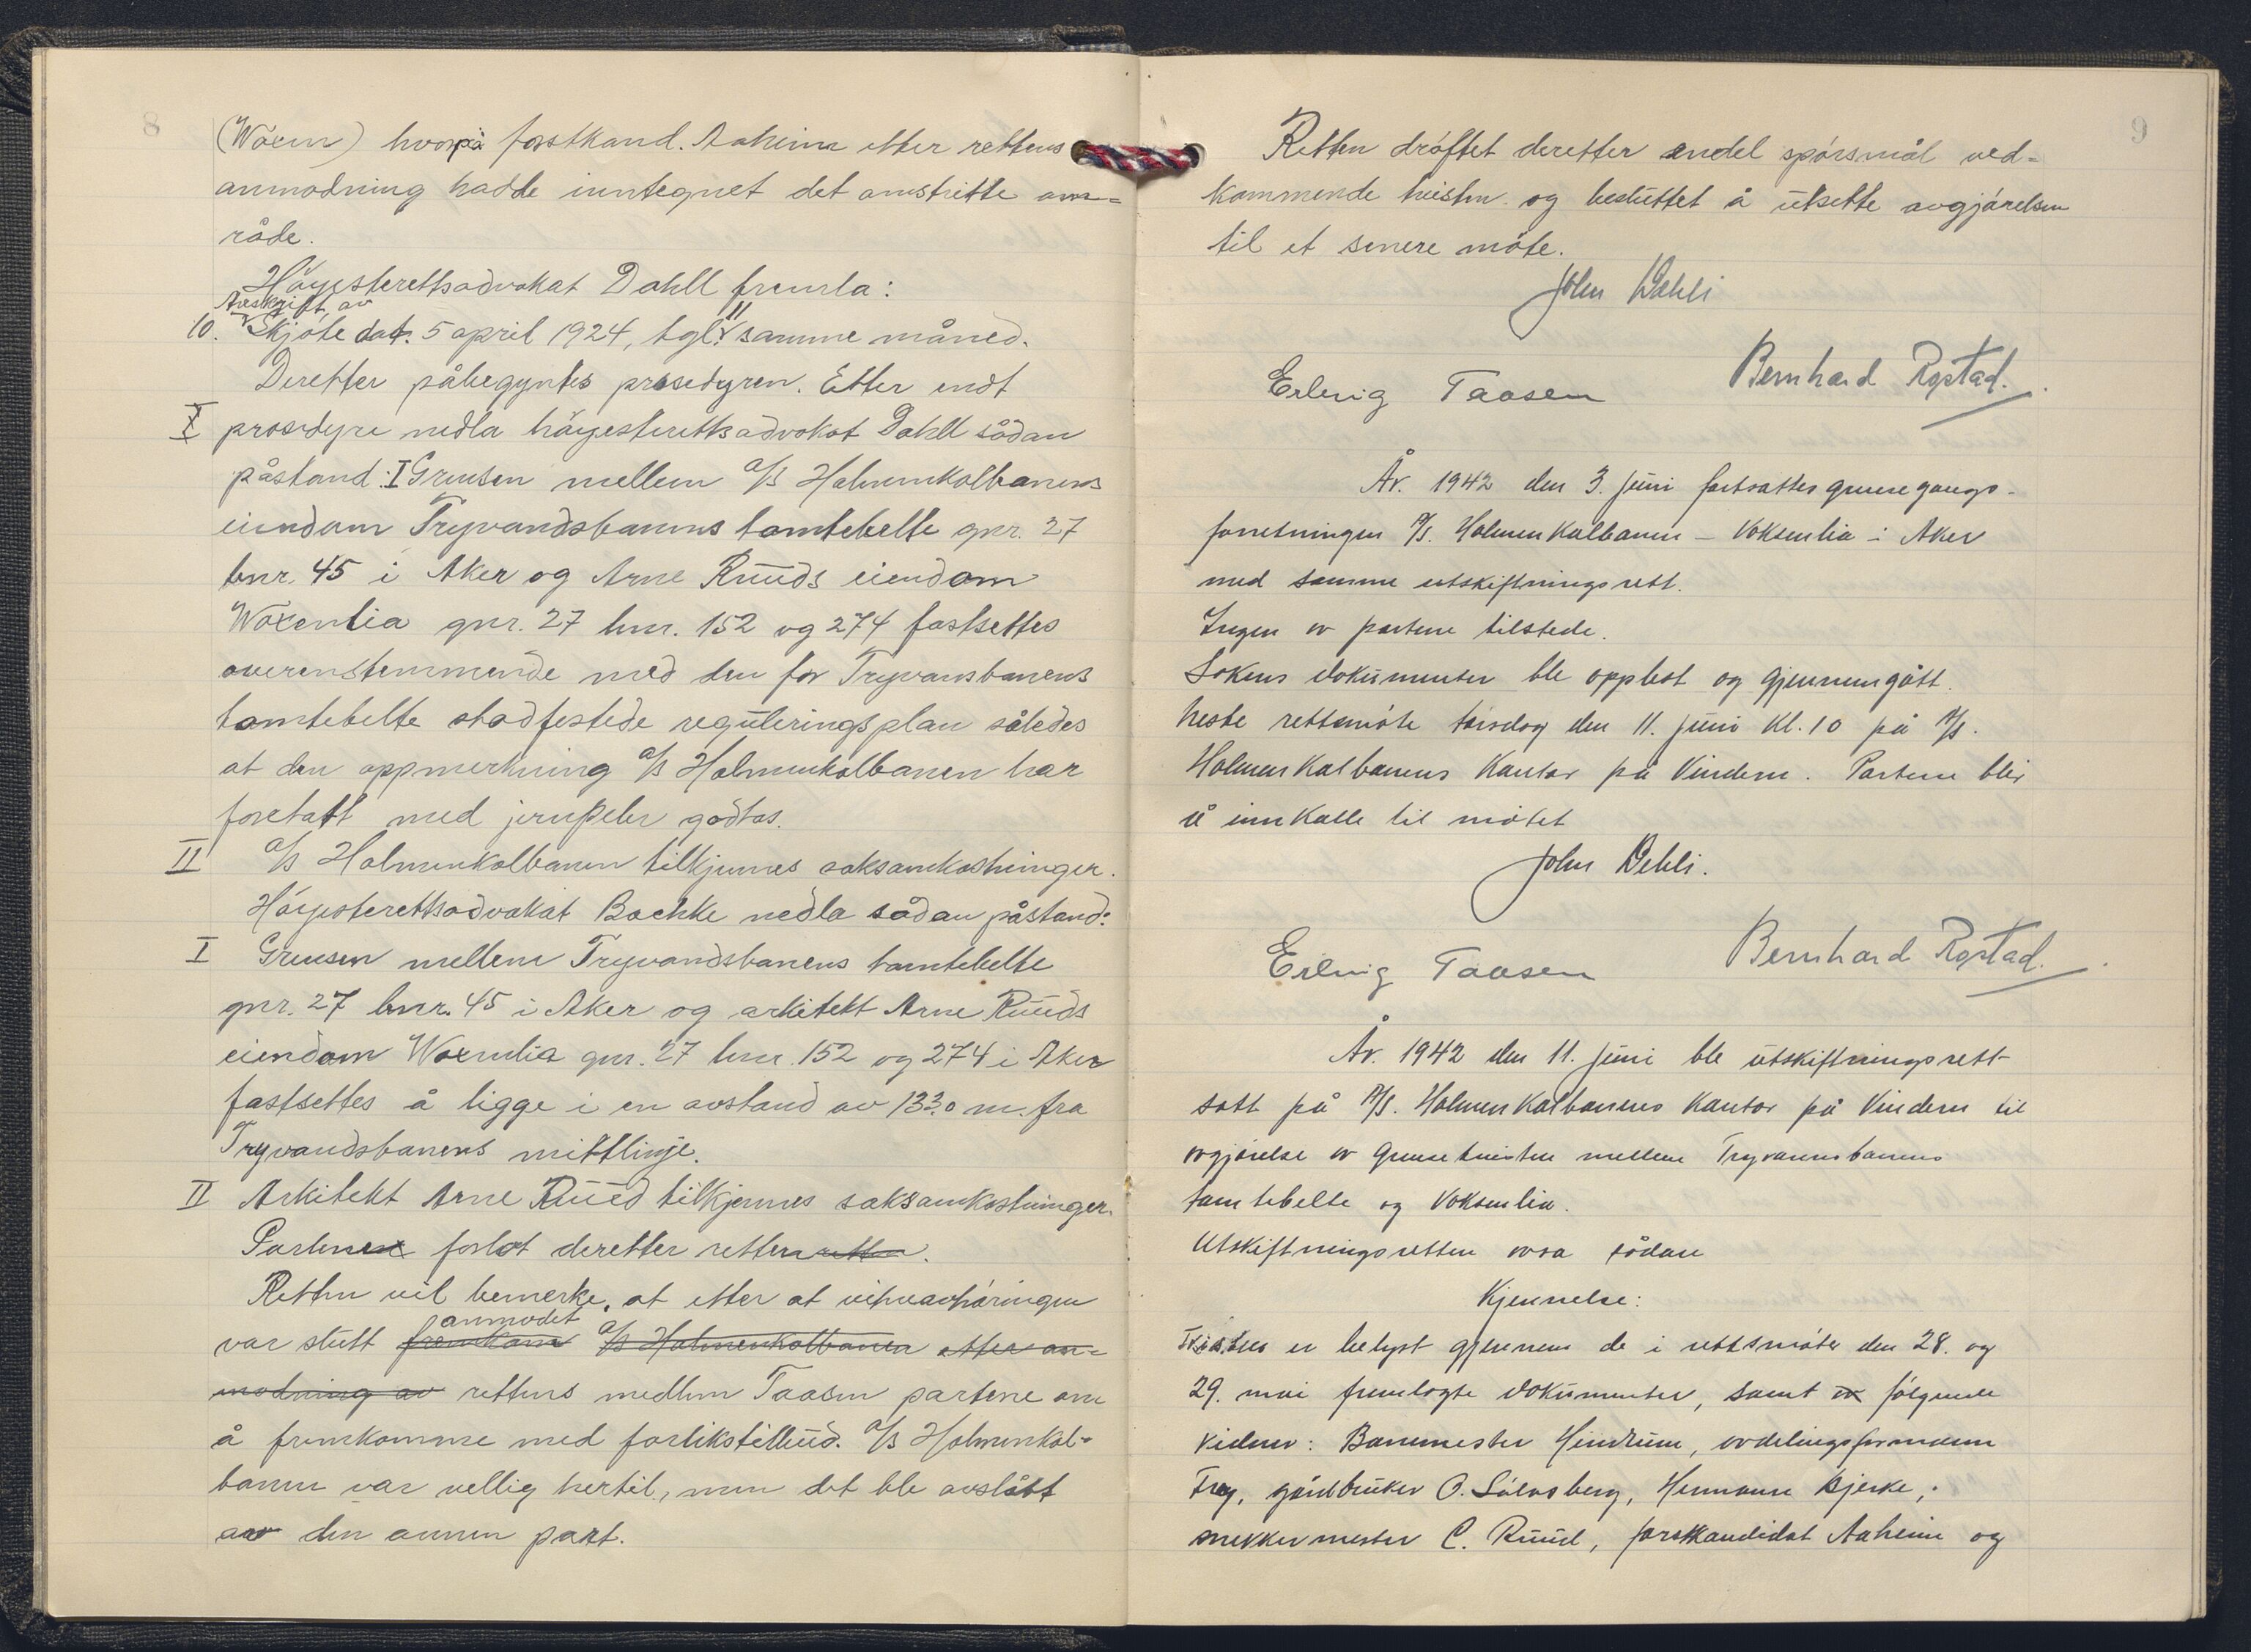 8
(Woxen) hvorpå forstkand. Aaheim etter rettens
anmodning hadde inntegnet det omstritte om-
råde.
Höyesterettsadvokat Dahll fremla:
Avskrift av
10. Skjöte dat. 5 april 1924, tgl. 11 samme måned.
Deretter påbegyntes prosedyren. Etter endt
prosedyre nedla höyesterettsadvokat Dahll sådan
påstand: I Grensen mellem A/S Holmenkolbanens
eiendom Tryvandsbanens tomtebelte gnr. 27
bnr. 45 i Aker og Arne Ruuds eiendom
Woxenlia gnr. 27 bnr. 152 og 274 fastsettes
overenstemmende med den for Tryvansbanens
tomtebelte stadfestede reguleringsplan således
at den oppmerkning A/S Holmenkolbanen har
foretatt med jernpeler godtas.
II A/S Holmenkolbanen tilkjennes saksomkostninger.
Höyesterettsadvokat Bachke nedla sådan påstand:
I Grensen mellem Tryvandsbanens tomtebelte
gnr. 27 bnr. 45 i Aker og arkitekt Arne Ruuds
eiendom Woxenlia gnr. 27 bnr. 152 og 274 i Aker
fastsettes å ligge i en avstand av 13.30 m. fra
Tryvandsbanens mittlinje.
II Arkitekt Arne Ruud tilkjennes saksomkostninger.
Partene forlot deretter retten retten.
Retten vil bemerke, at etter at vitneavhöringen
anmodet
var slutt fremkom A/S Holmenkolbanen etter an-
modning av rettens medlem Taasen partene om
å fremkomme med forlikstilbud. A/S Holmenkol-
banen var villig hertil, men det ble avslått
av den annen part.
9
Retten dröftet deretter endel spörsmål ved-
kommende tvisten og besluttet å utsette avgjörelsen
til et senere möte.
John Dehli
Erling Taasen Bernhard Rostad.
År. 1942 den 3. juni fortsattes grensegangs-
forretningen A/S. Holmenkolbanen - Voksenlia i Aker
med samme utskiftningsrett.
Ingen av partene tilstede.
Sakens dokumenter ble opplest og gjennemgått.
Neste rettsmöte torsdag den 11. juni kl. 10 på A/S.
Holmenkolbanens kontor på Vinderen. Partene blir
å innkalle til mötet
John Dehli.
Erling Taasen Bernhard Rostad.
År. 1942 den 11. juni ble utskiftningsrett
satt på A/S. Holmenkolbanens kontor på Vinderen til
avgjörelse av grensetvisten mellem Tryvannsbanens
tomtebelte og Voksenlia.
Utskiftningsretten avsa sådan
Kjennelse:
Tvisten er belyst gjennem de i rettsmöter den 28. og
29. mai fremlagte dokumenter, samt av fölgende
vidner: Banemester Hindrum, avdelingsformann
Frey, gårdbruker O. Sólvsberg, Hermann Bjerke,
snekkermester C. Ruud, forstkandidat Aaheim og